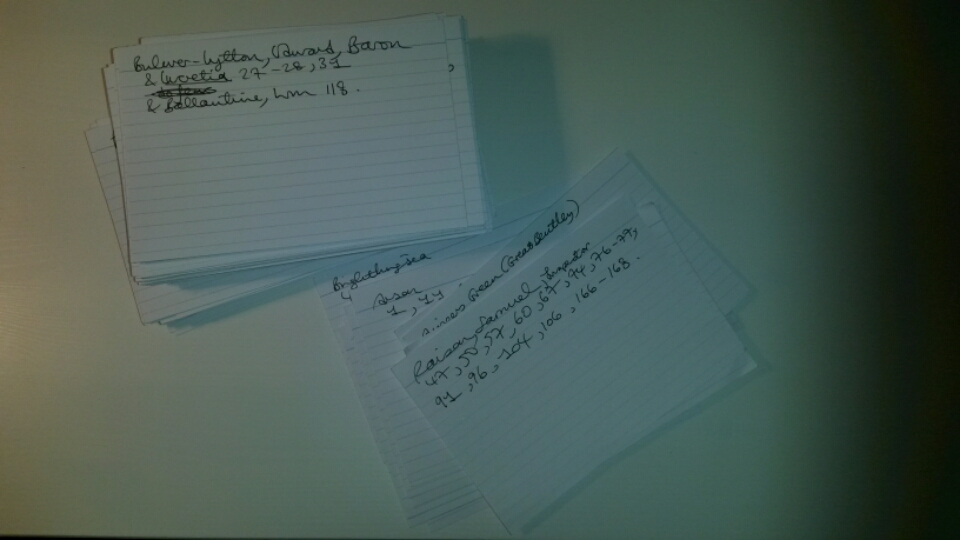 Bulwer-Lytton, Edward, Baron
& Lucretia 27-28, 31
& Ballantine, Wm 118.
Brightlingsea
4
Arson
1, 14
Aingers Green (Great Bentley)
Raison, Samuel, Inspector
47, 50, 57, 60, 67, 74, 76-79,
91, 96, 104, 106, 166-168.